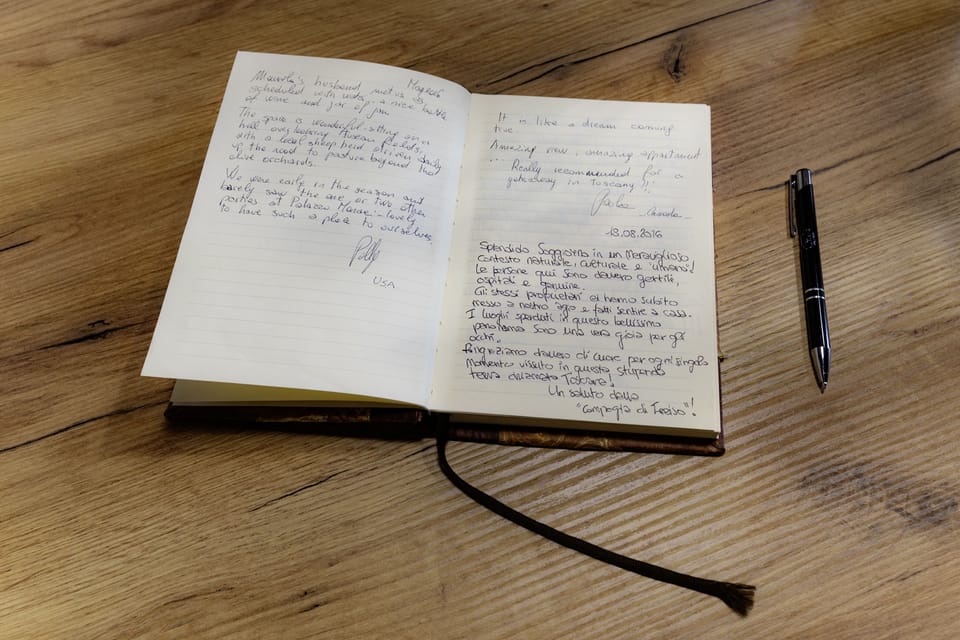 husband met us as
scheduled with water, a nice bottle
of wine and jar of jam
The space is wonderful - sitting on a
hill overlooking Tuscan fields,
with a local sheep herd driven daily
up the road to pasture beyond the
olive orchards.
We were early in the season and
barely saw the one or two other
parties at Palazzo - lovely
to have such a place to ourselves.
Polly
USA
It is like a dream coming
true.
Amazing view, amazing appartment
... Really recommended for a
getaway in Tuscany!!
18.08.2016
Splendido Soggiorno in un Meraviglioso
contesto naturale, culturale e "umano".
Le persone qui sono davvero gentili,
ospitali e genuine.
Gli stessi proprietari ci hanno subito
messo a nostro agio e fatti sentire a casa.
I luoghi sparduti in questo bellissimo
panorama sono una vera gioia per gli
occhi.
Ringraziamo davvero di cuore per ogni singolo
momento vissuto in questa stupenda
terra chiamata Toscana!
Un saluto dalla
"Compagia di "!